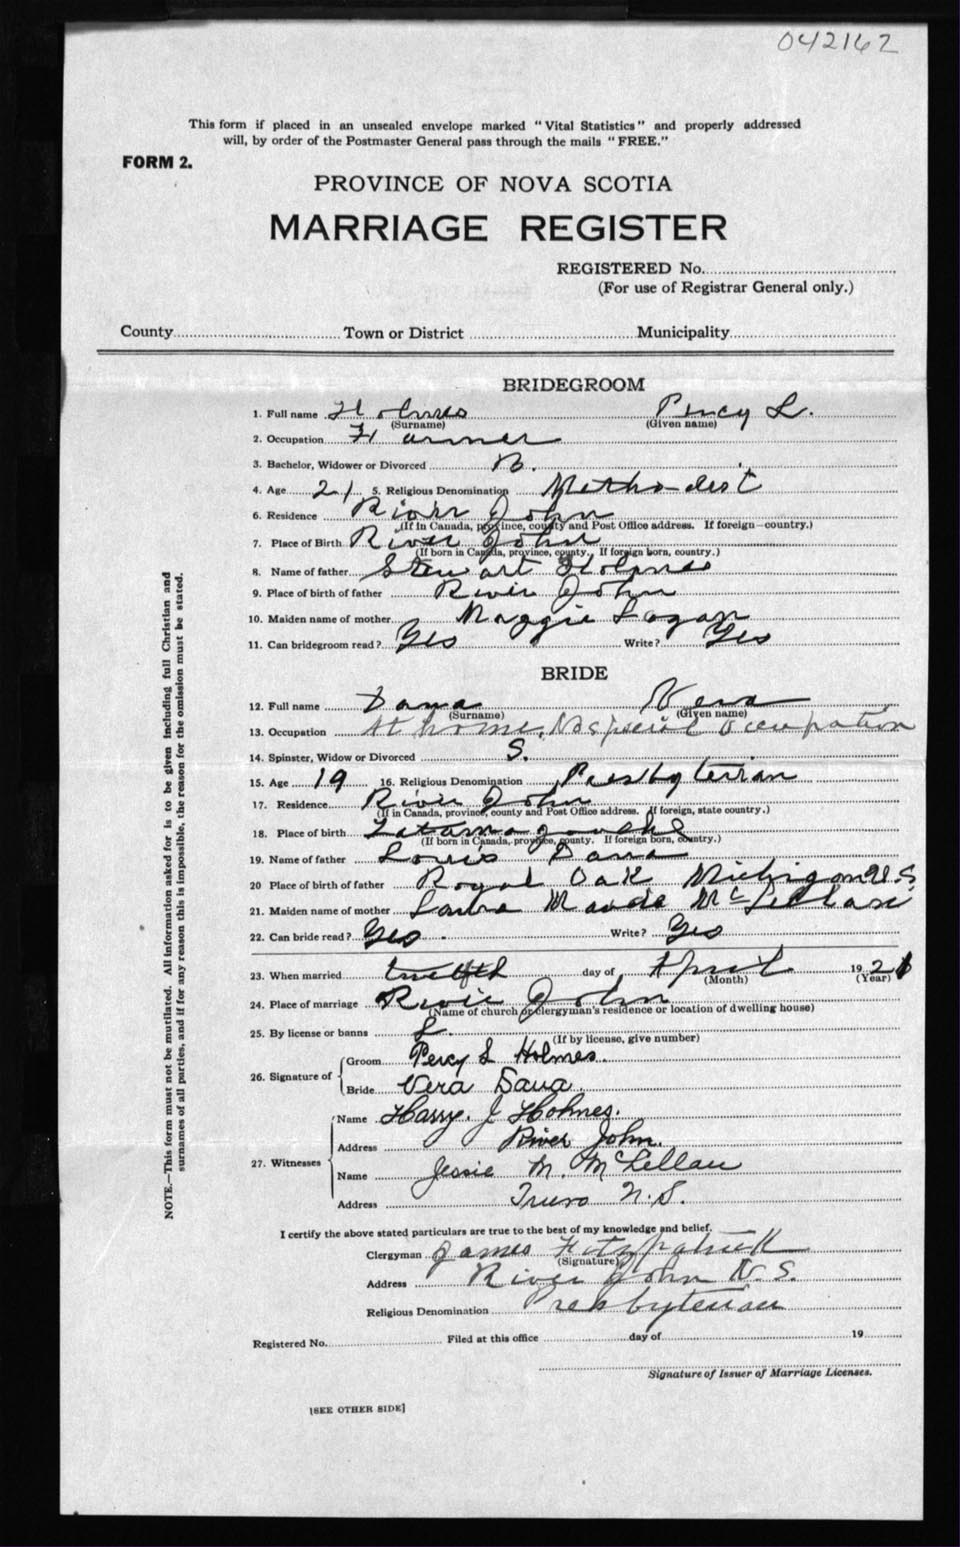 042162
This form if placed in an unsealed envelope marked "Vital Statistics" and properly addressed
will, by order of the Postmaster General pass through the mails "FREE."
FORM 2.
PROVINCE OF NOVA SCOTIA
MARRIAGE REGISTER
REGISTERED No.
(For use of Registrar General only.)
County Town or District Municipality
BRIDEGROOM
1. Full name Holmes Percy L.
(Surname) (Given name)
2. Occupation Farmer
3. Bachelor, Widower or Divorced B.
4. Age 21 5. Religious Denomination Methodist
6. Residence River John
(If in Canada, province, county and Post Office address. If foreign—country.)
7. Place of Birth River John
(If born in Canada, province, county. If foreign born, country.)
8. Name of father Stewart Holmes
9. Place of birth of father River John
10. Maiden name of mother Maggie Logan
11. Can bridegroom read? Yes Write? Yes
BRIDE
12. Full name Dana Vera
(Surname) (Given name)
13. Occupation At home, No special Occupation
14. Spinster, Widow or Divorced S.
15. Age 19 16. Religious Denomination Presbyterian
17. Residence River John
(If in Canada, province, county and Post Office address. If foreign, state country.)
18. Place of birth Tatamagouche
(If born in Canada, province, county. If foreign born, country.)
19. Name of father Louis Dana
20 Place of birth of father Royal Oak Michigan U.S.
21. Maiden name of mother Laura Maude McLellan
22. Can bride read? Yes Write? Yes
23. When married twelfth day of April 1921
(Month) (Year)
24. Place of marriage River John
(Name of church or clergyman's residence or location of dwelling house)
25. By license or banns L.
(If by license, give number)
26. Signature of Groom Percy L Holmes
Bride Vera Dana
27. Witnesses Name Harry. J Holmes.
Address River John.
Name Jessie M. McLellan
Address Truro N.S.
I certify the above stated particulars are true to the best of my knowledge and belief.
Clergyman James Fitzpatrick
(Signature)
Address River John N.S.
Religious Denomination Presbyterian
Registered No. Filed at this office day of 19
Signature of Issuer of Marriage Licenses.
[SEE OTHER SIDE]
NOTE.—This form must not be mutilated. All information asked for is to be given including full Christian and
surnames of all parties, and if for any reason this is impossible, the reason for the omission must be stated.